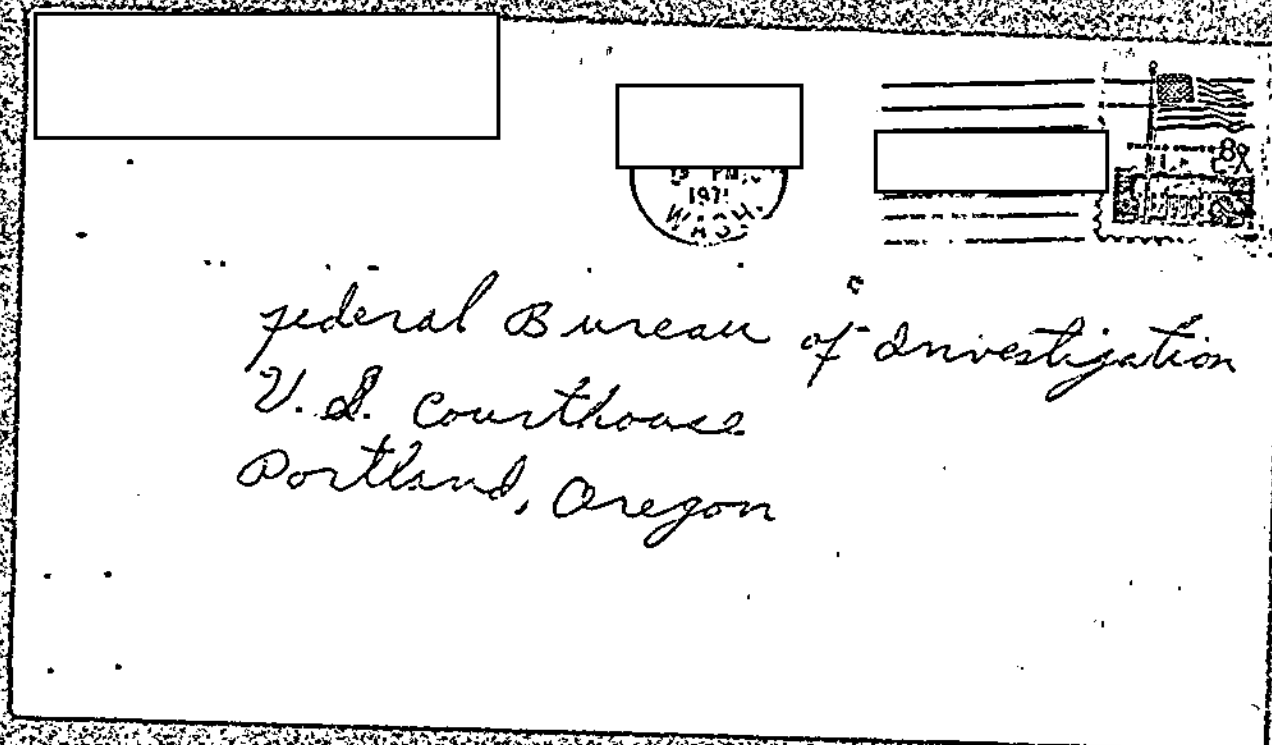 PM
1971
WASH.
UNITED STATES
8¢
Federal Bureau of Investigation
U.S. Courthouse
Portland, Oregon